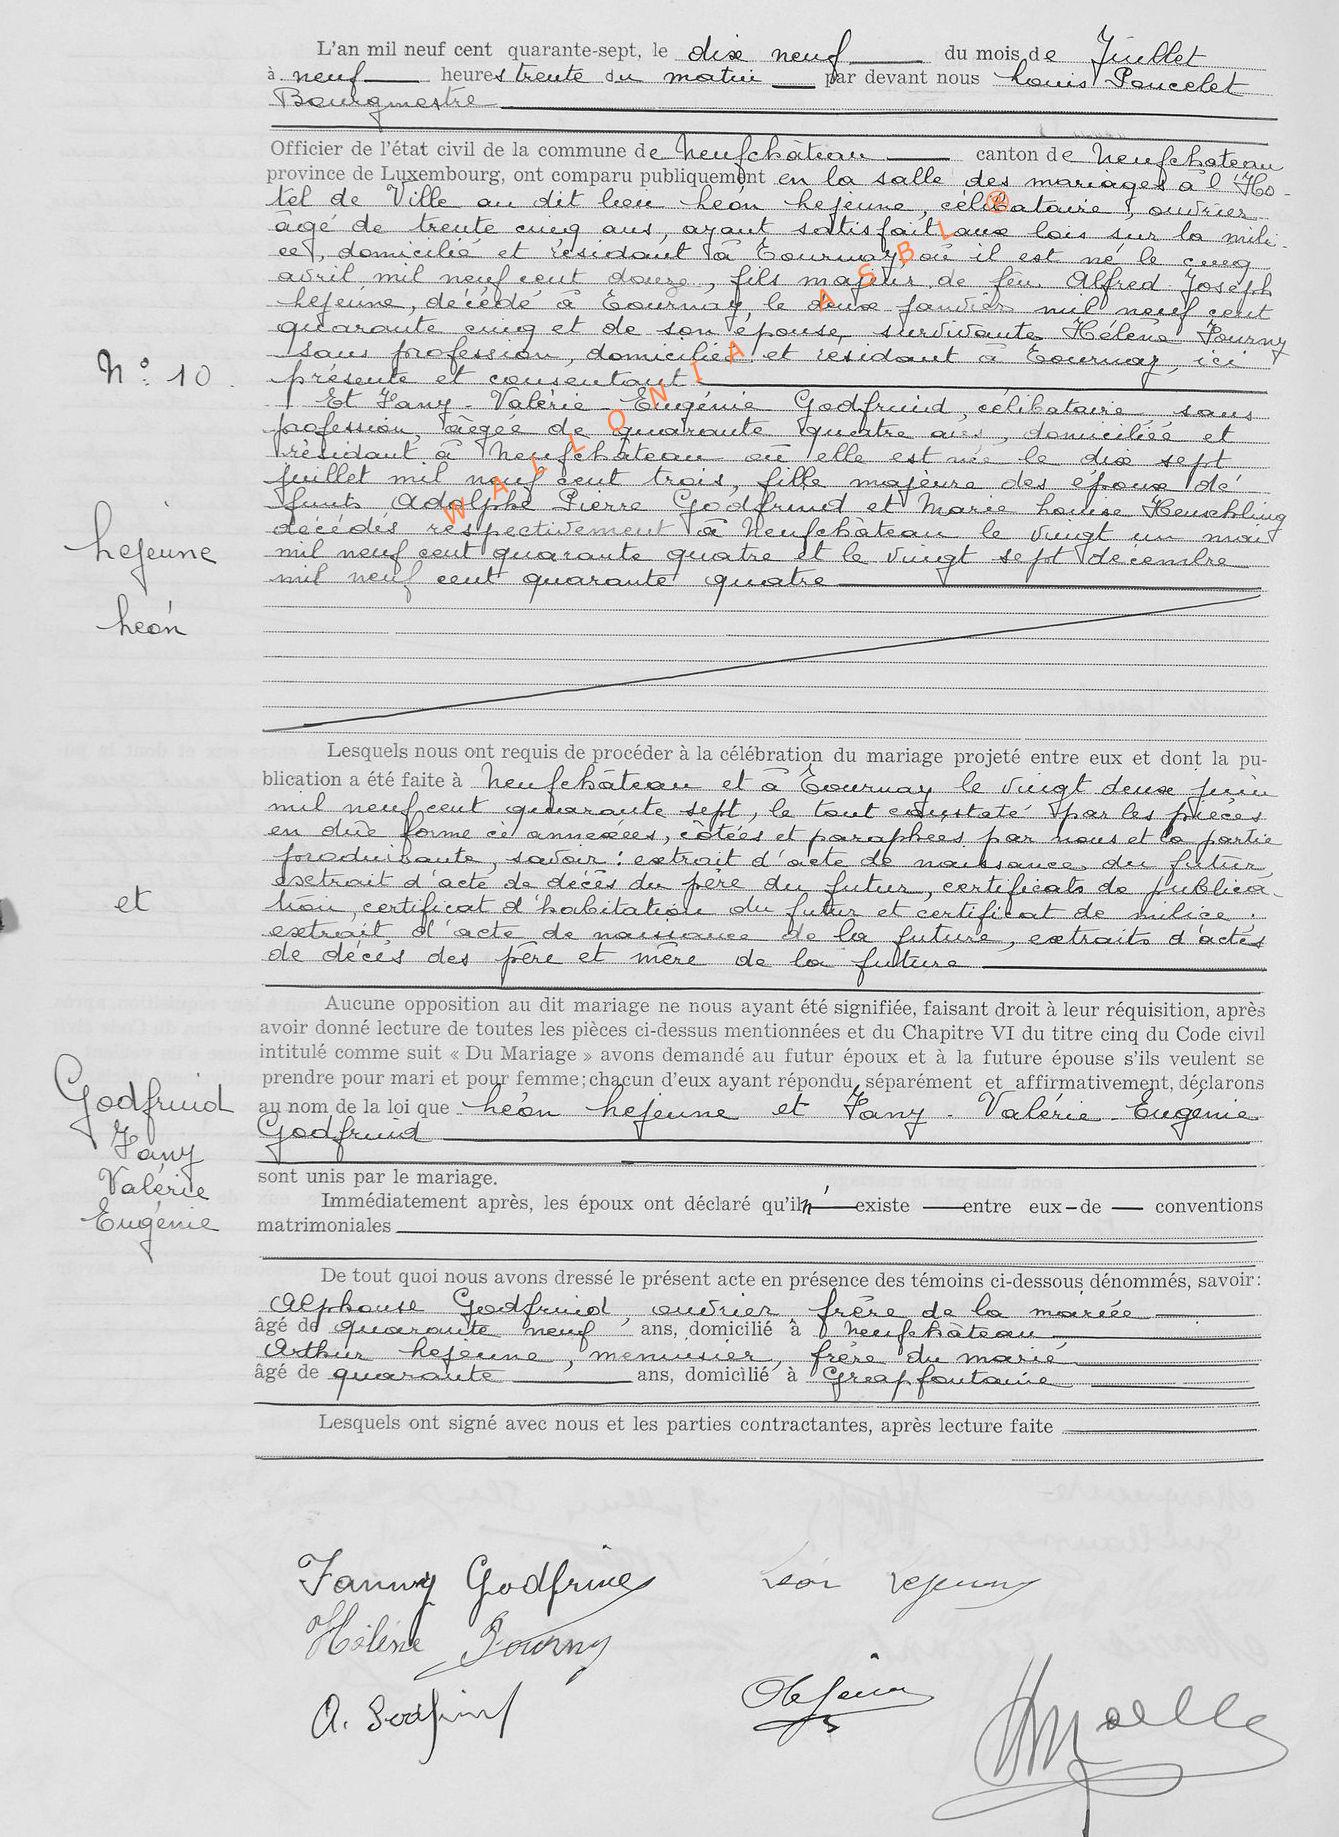 L'an mil neuf cent quarante-sept, le dix neuf du mois de Juillet
à neuf heures trente du matin par devant nous Louis Poncelet
Bourgmestre
Officier de l'état civil de la commune de Neufchâteau canton de Neufchâteau
province de Luxembourg, ont comparu publiquement en la salle des mariages à l'Ho-
tel de Ville au dit lieu Léon Lejeune, célibataire, ouvrier
âgé de trente cinq ans, ayant satisfait aux lois sur la mili-
ce, domicilié et résidant à Tournay, où il est né le cinq
avril mil neuf cent douze, fils majeur de feu Alfred Joseph
Lejeune, décédé à Tournay, le deux janvier mil neuf cent
quarante cinq et de son épouse, survivante Hélène Fourny
sans profession, domiciliée et résidant à Tournay, ici
N° 10.
présente et consentant.
Et Fany - Valérie - Eugénie Godfruid, célibataire sans
profession, âgée de quarante quatre ans, domiciliée et
résidant à Neufchâteau où elle est née le dix sept
juillet mil neuf cent trois, fille majeure des époux dé-
funts Adolphe Pierre Godfruid et Marie Louise Heuschling
décédés respectivement à Neufchâteau le vingt un mai
mil neuf cent quarante quatre et le vingt sept décembre
mil neuf cent quarante quatre
WALLONIA ASBL ®
Lejeune
Léon
Lesquels nous ont requis de procéder à la célébration du mariage projeté entre eux et dont la pu-
blication a été faite à Neufchâteau et à Tournay le vingt deux juin
mil neuf cent quarante sept, le tout constaté par les pièces
en due forme ci annexées, côtées et paraphées par nous et la partie
produisante, savoir : extrait d'acte de naissance du futur,
extrait d'acte de décès du père du futur, certificats de publica-
tion, certificat d'habitation du futur et certificat de milice.
extrait d'acte de naissance de la future, extraits d'actes
de décès des père et mère de la future
et
Aucune opposition au dit mariage ne nous ayant été signifiée, faisant droit à leur réquisition, après
avoir donné lecture de toutes les pièces ci-dessus mentionnées et du Chapitre VI du titre cinq du Code civil
intitulé comme suit « Du Mariage » avons demandé au futur époux et à la future épouse s'ils veulent se
prendre pour mari et pour femme; chacun d'eux ayant répondu séparément et affirmativement, déclarons
au nom de la loi que Léon Lejeune et Fany - Valérie - Eugénie
Godfruid
Godfruid
Fany
Valérie
Eugénie
sont unis par le mariage.
Immédiatement après, les époux ont déclaré qu'il n'existe entre eux de conventions
matrimoniales
De tout quoi nous avons dressé le présent acte en présence des témoins ci-dessous dénommés, savoir :
Alphonse Godfruid, ouvrier frère de la mariée
âgé de quarante neuf ans, domicilié à Neufchâteau
Arthur Lejeune, menuisier, frère du marié
âgé de quarante ans, domicilié à Grapfontaine
Lesquels ont signé avec nous et les parties contractantes, après lecture faite
Fanny Godfrind Léon Lejeune
Hélène Fourny
A. Godfrind